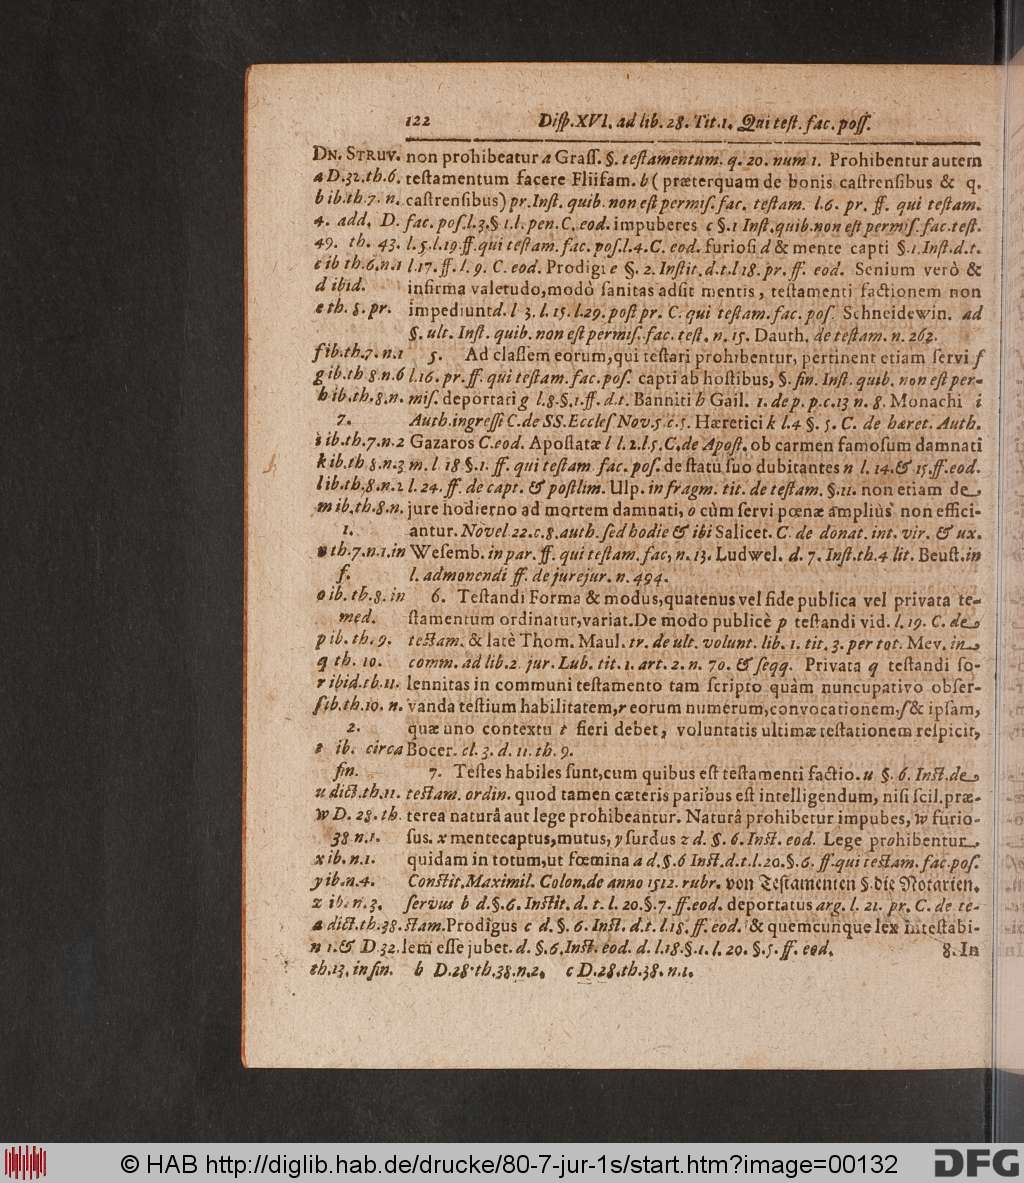 122 Disp. XVI. ad lib. 28. Tit. 1. Qui test. fac. poss.
DN. STRUV. non prohibeatur a Grass. §. testamentum. q. 20. num 1. Prohibentur autem
a D. 32. th. 6. testamentum facere Fliifam. b (præterquam de bonis castrensibus & q.
b ib. th. 7. n. castrensibus) pr. Inst. quib. non est permiss. fac. testam. l. 6. pr. ff. qui testam.
4. add. D. fac. pos. l. 3. § 1. l. pen. C. eod. impuberes c §. 1 Inst. quib. non est permiss. fac. test.
49. th. 43. l. 5. l. 19. ff. qui testam. fac. pos. l. 4. C. eod. furiosi d & mente capti §. 1. Inst. d. t.
c ib th. 6. n. 1 l. 17. ff. l. 9. C. eod. Prodigi e §. 2. Instit. d. t. l 18. pr. ff. eod. Senium verò &
d ibid. infirma valetudo, modò sanitas adsit mentis, testamenti factionem non
e th. 5. pr. impediunt d. l 3. l. 15. l. 29. post pr. C. qui testam. fac. pos. Schneidewin. ad
§. ult. Inst. quib. non est permiss. fac. test. n. 15. Dauth. de testam. n. 262.
f ib. th. 7. n. 1 5. Ad classem eorum, qui testari prohibentur, pertinent etiam servi f
g ib. th 8. n. 6 l. 16. pr. ff. qui testam. fac. pos. capti ab hostibus, §. fin. Inst. quib. non est per-
h ib. th. 8. n. miss. deportati g l. 8. §. 1. ff. d. t. Banniti h Gail. 1. de p. p. c. 13 n. 8. Monachi i
7. Auth. ingressi C. de SS. Eccles Nov. 5. c. 5. Hæretici k l. 4 §. 5. C. de hæret. Auth.
i ib. th. 7. n. 2 Gazaros C. eod. Apostatæ l l. 2. l. 5. C. de Apost. ob carmen famosum damnati
k ib. th 8. n. 3 m. l 18 §. 1. ff. qui testam fac. pos. de statu suo dubitantes n l. 14. & 15. ff. eod.
l ib. th. 8. n. 2 l. 24. ff. de capt. & postlim. Ulp. in fragm. tit. de testam. §. 11. non etiam de
m ib. th. 8. n. jure hodierno ad mortem damnati, o cùm servi pœnæ ampliùs non effici-
1. antur. Novel 22. c. 8. auth. sed hodie & ibi Salicet. C. de donat. int. vir. & ux.
n th. 7. n. 1. in Wesemb. in par. ff. qui testam. fac, n. 13. Ludwel. d. 7. Inst. th. 4 lit. Beust. in
f. l. admonendi ff. de jurejur. n. 494.
o ib. th. 8. in 6. Testandi Forma & modus, quatenus vel fide publica vel privata te-
med. stamentum ordinatur, variat. De modo publicè p testandi vid. l. 19. C. de
p ib. th. 9. testam. & latè Thom. Maul. tr. de ult. volunt. lib. 1. tit. 3. per tot. Mev. in
q th. 10. comm. ad lib. 2. jur. Lub. tit. 1. art. 2. n. 70. & seqq. Privata q testandi so-
r ibid. th. 11. lennitas in communi testamento tam scripto quàm nuncupativo obser-
s ib. th. 10. n. vanda testium habilitatem, r eorum numerum, convocationem, s & ipsam,
2. quæ uno contextu t fieri debet, voluntatis ultimæ testationem respicit,
t ib. circa Bocer. cl. 3. d. 11. th. 9.
fin. 7. Testes habiles sunt, cum quibus est testamenti factio. u §. 6. Inst. de
u dict. th. 11. testam. ordin. quod tamen cæteris paribus est intelligendum, nisi scil. præ-
w D. 28. th. terea naturâ aut lege prohibeantur. Naturâ prohibetur impubes, w furio-
38 n. 1. sus. x mentecaptus, mutus, y surdus z d. §. 6. Inst. eod. Lege prohibentur
x ib. n. 1. quidam in totum, ut fœmina a d. §. 6 Inst. d. t. l. 20. §. 6. ff. qui testam. fac. pos.
y ib. n. 4. Constit. Maximil. Colon. de anno 1512. rubr. von Testamenten §. die Notarien.
z ib. n. 3. servus b d. §. 6. Instit. d. t. l. 20. §. 7. ff. eod. deportatus arg. l. 21. pr. C. de te-
a dict. th. 38. stam. Prodigus c d. §. 6. Inst. d. t. l. 18. ff. eod. & quemcunque lex intestabi-
n 1. & D 32. lem esse jubet. d. §. 6. Inst. eod. d. l. 18. §. 1. l. 20. §. 5. ff. eod. 8. In
th. 13. in fin. b D. 28. th. 38. n. 2. c D. 28. th. 38. n. 1.
© HAB http://diglib.hab.de/drucke/80-7-jur-1s/start.htm?image=00132 DFG